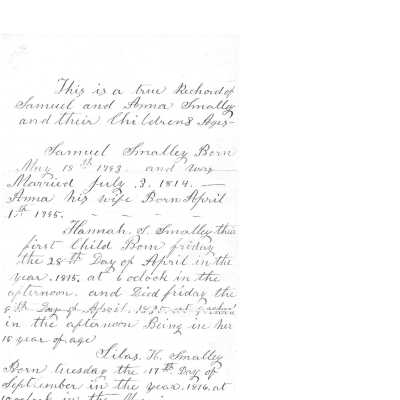 This is a true Richord of
Samuel and Anna Smalley
and their Childrens Ages-
Samuel Smalley Born
May 18th 1793 and was
Married July 3. 1814. —
Anna his wife Born April
1th 1795. - - - -
Hannah. S. Smalley this
first Child Born friday
the 28th Day of April in the
year. 1815. at 6 oclock in the
afternoon. and Died friday the
8th Day of April. 1825. at
in the afternoon Being in her
10 year of age
Silas. H. Smalley
Born tuesday the 17th Day of
September in the year. 1816. at
oclock in the